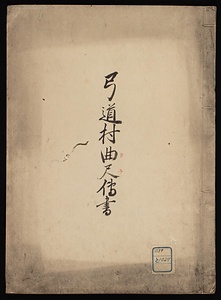 弓道村曲尺傳書